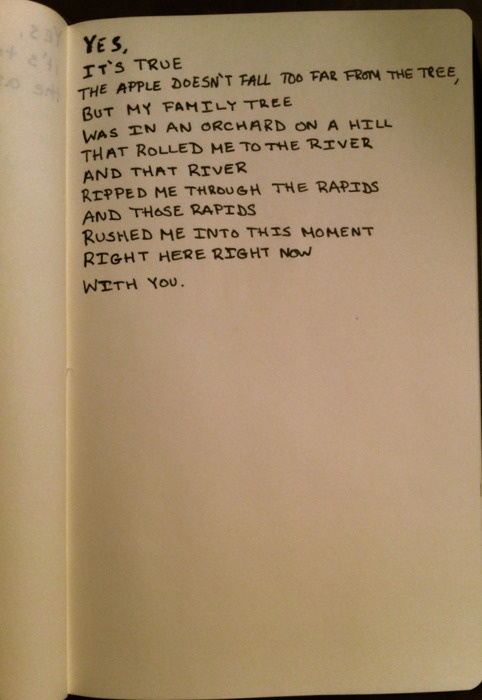 YES,
IT'S TRUE
THE APPLE DOESN'T FALL TOO FAR FROM THE TREE,
BUT MY FAMILY TREE
WAS IN AN ORCHARD ON A HILL
THAT ROLLED ME TO THE RIVER
AND THAT RIVER
RIPPED ME THROUGH THE RAPIDS
AND THOSE RAPIDS
RUSHED ME INTO THIS MOMENT
RIGHT HERE RIGHT NOW
WITH YOU.